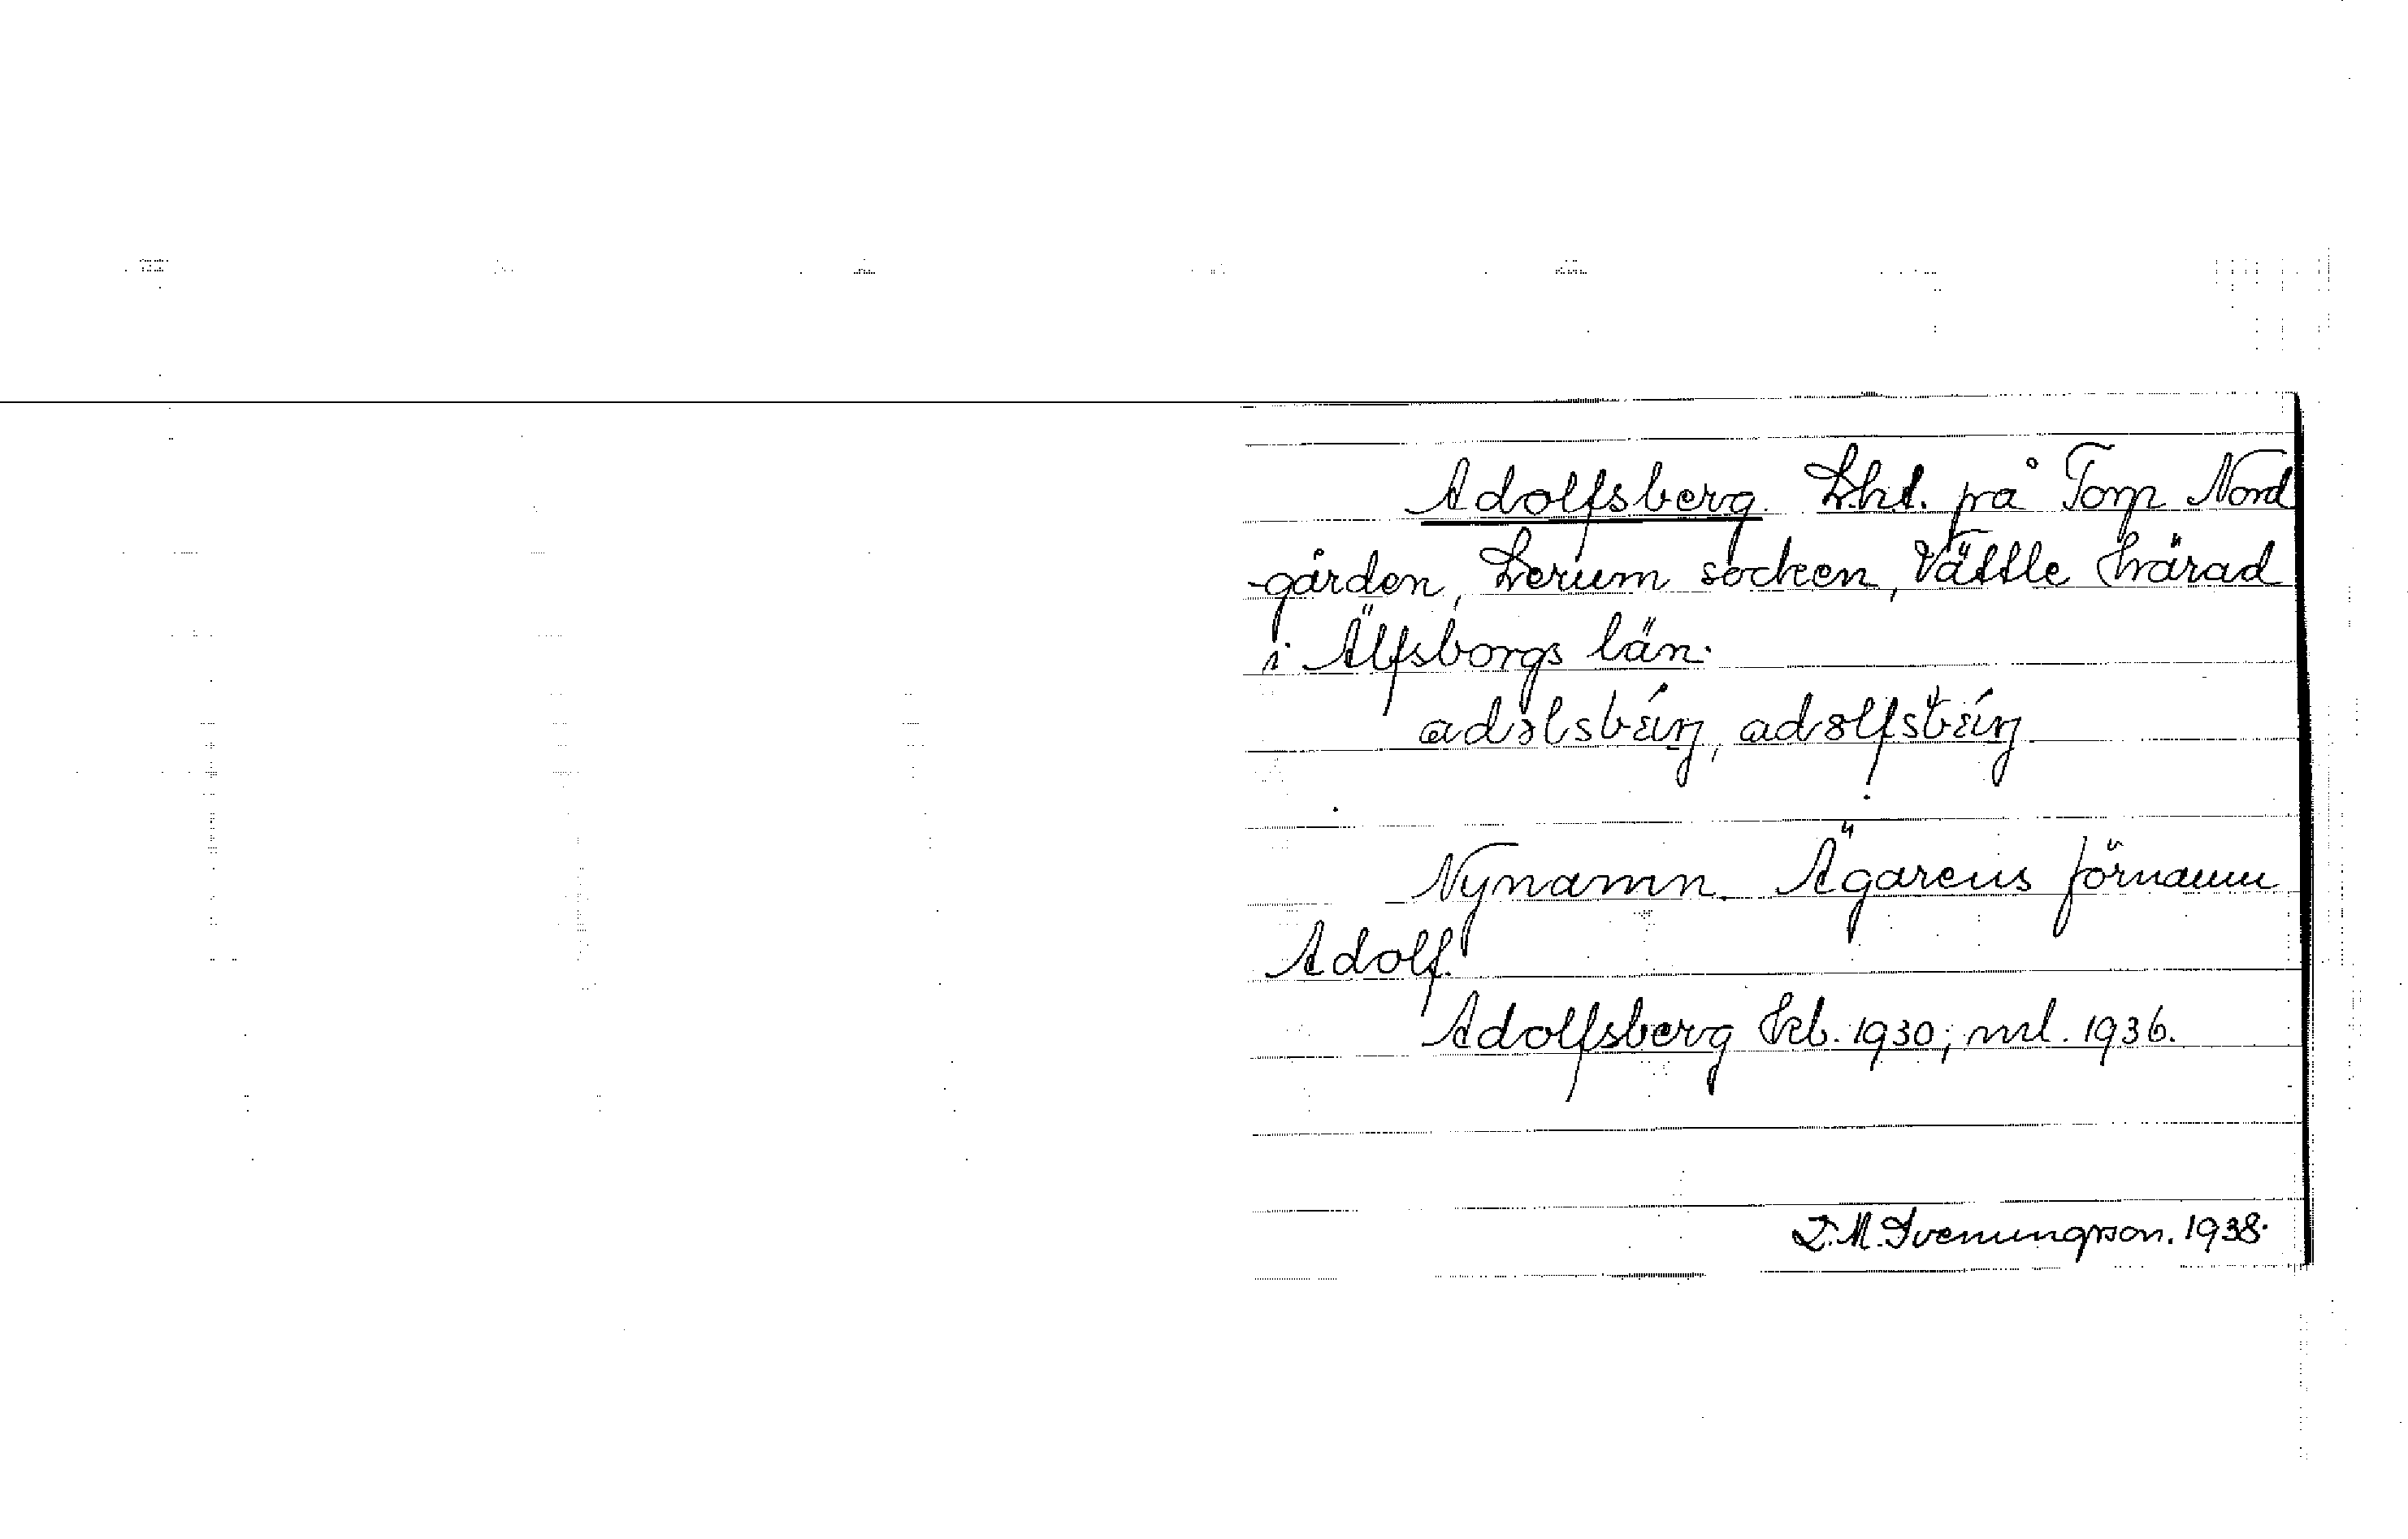 Adolfsberg. Lht. på Torp Nord
-gården, Lerum socken, Vättle härad
i Älfsborgs län.
Nynamn. Ägarens förnamn
Adolf.
Adolfsberg Kb. 1930; ml. 1936.
D.M. Svenungsson. 1938.